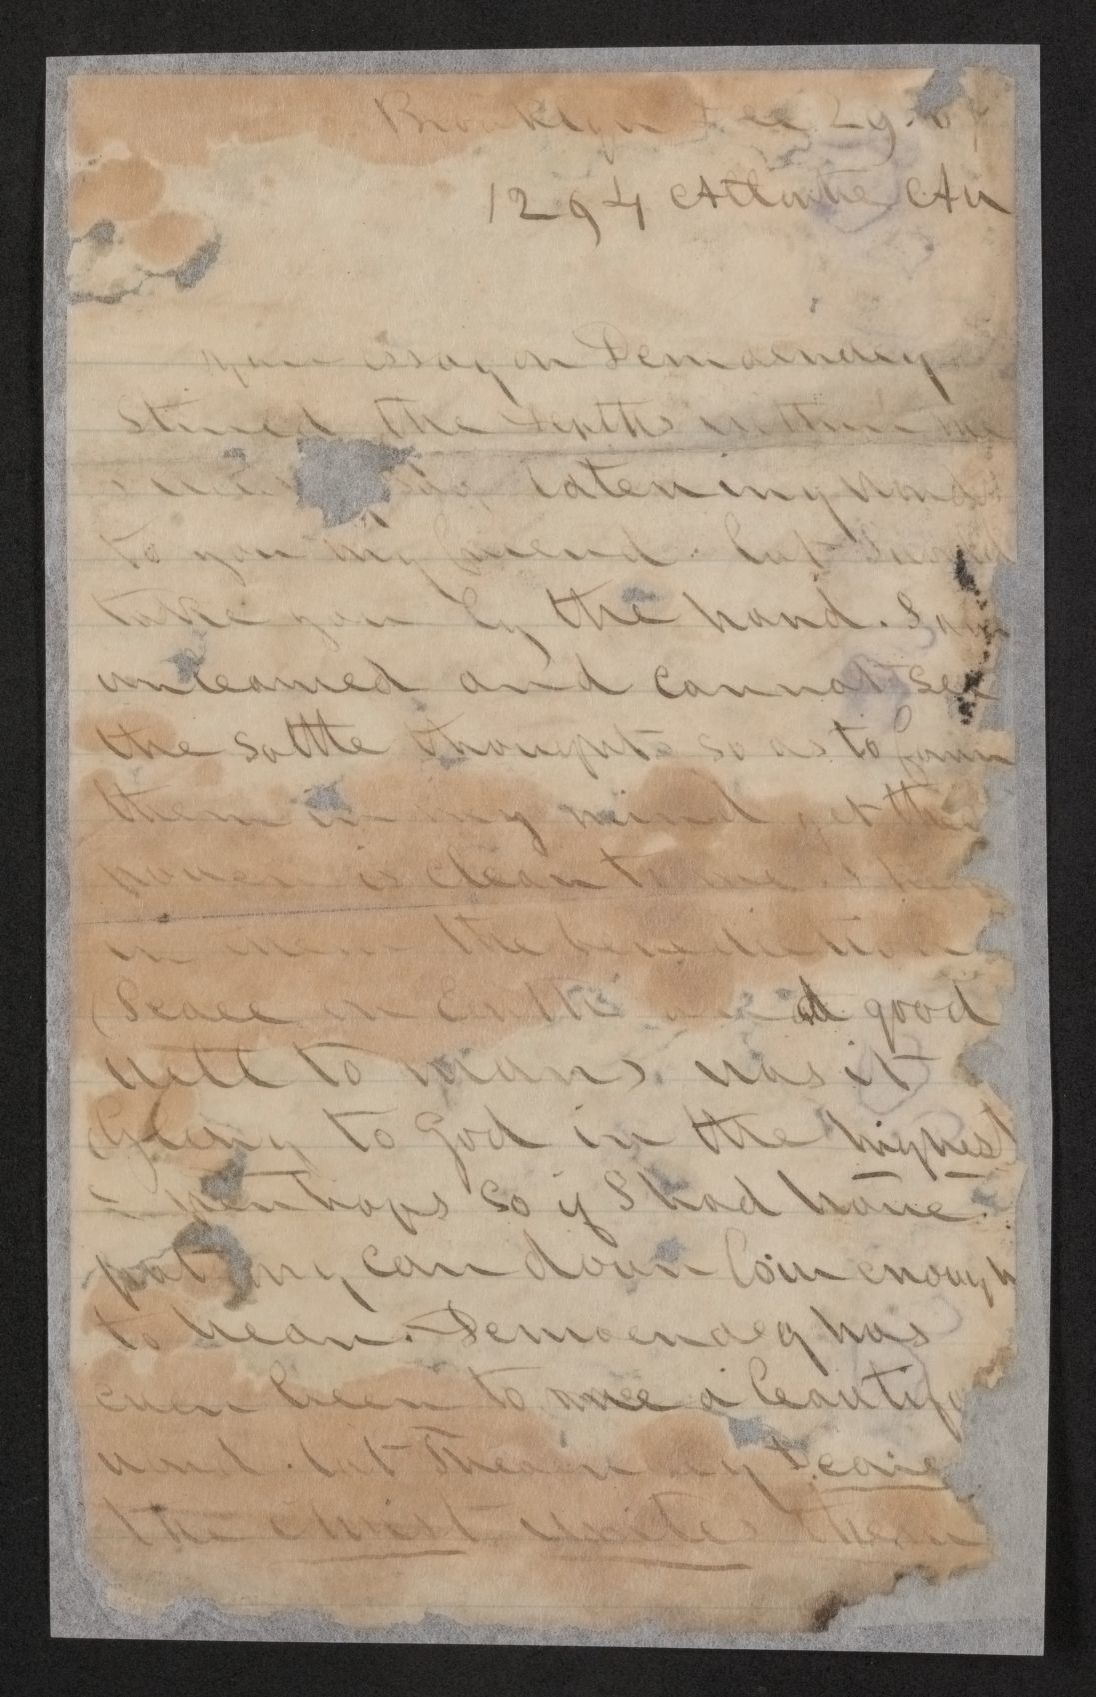 Brooklyn Dec 29. 67
1294 Atlantic Av
your essay on Democracy
Stirred the depths within me
listening words
to you my friend. but I would
take you by the hand. I am
unlearned and cannot see
the sottle thoughts so as to form
them in my mind yet the
power is clear to me. I hear
in them the benediction
Peace on Earth and good
will to mans. was it
Glory to God in the highest
- perhaps so if I had have
put my ear down low enough
to hear. Democracy has
ever been to me a beautiful
word. but Theory
the Christ unites them